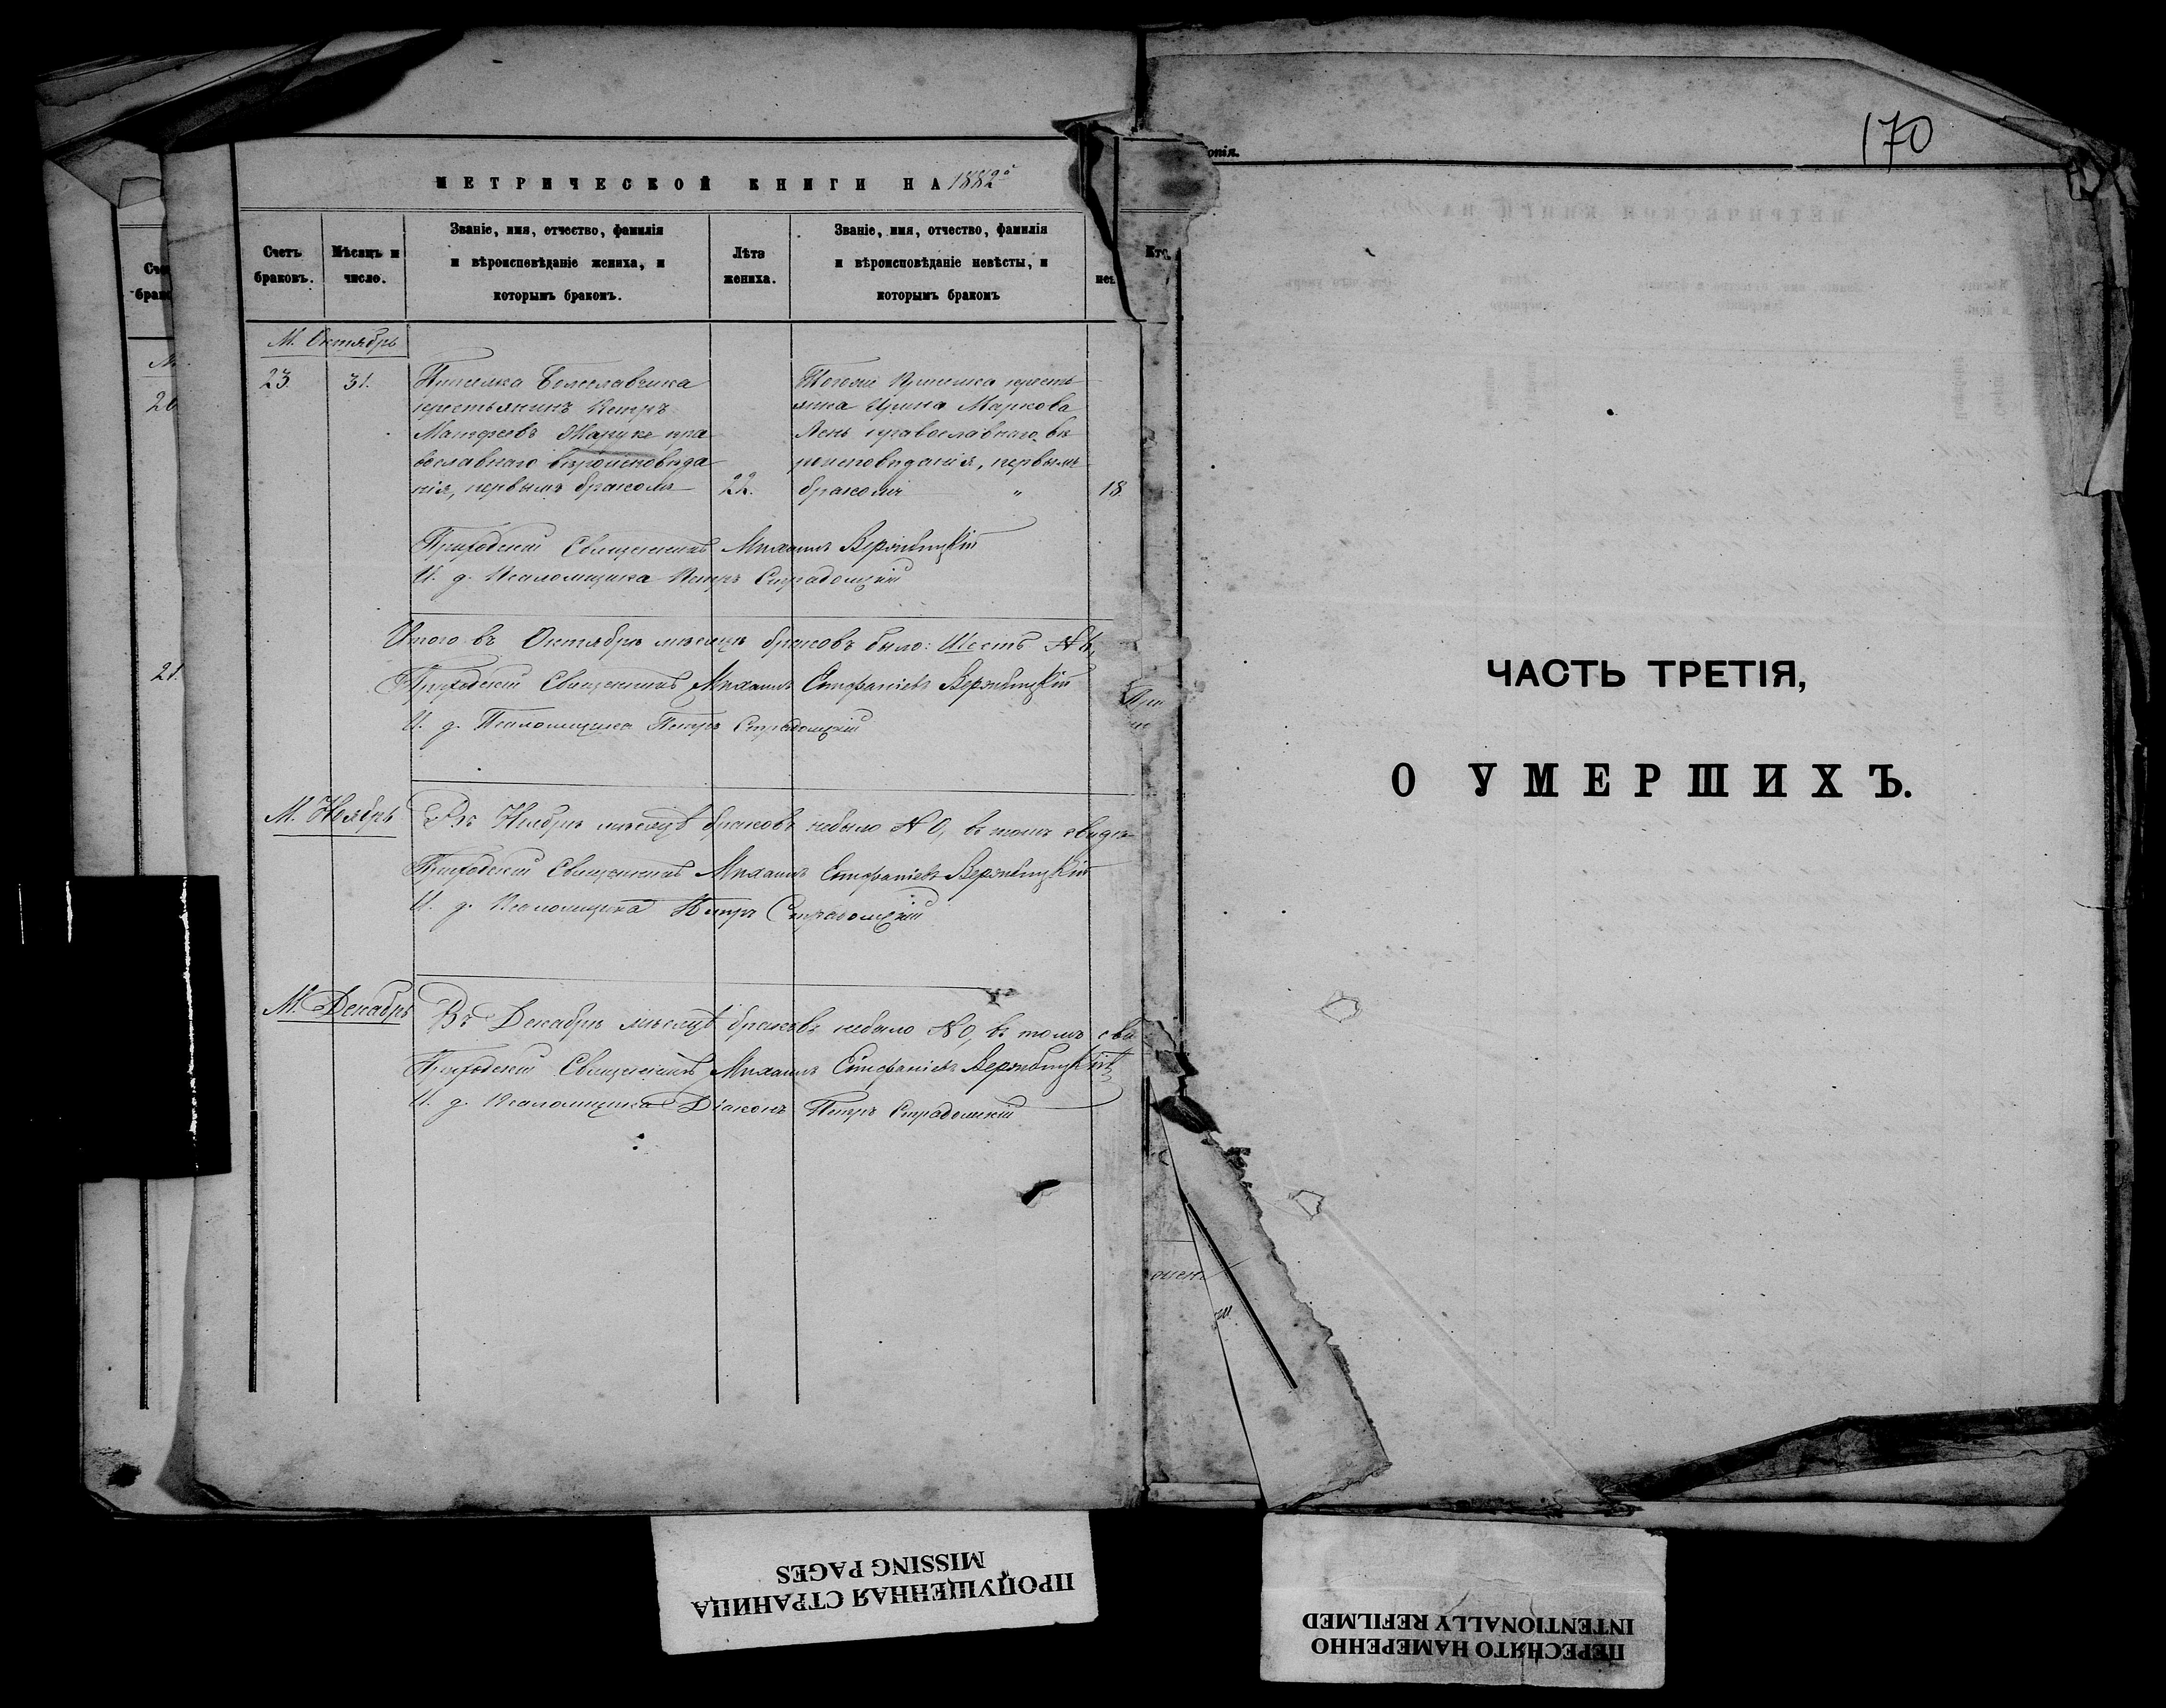 170
МЕТРИЧЕСКОЙ КНИГИ НА 1882
Счетъ браковъ.
Мѣсяцъ и число.
Званіе, имя, отчество, фамилія
и вѣроисповѣданіе жениха, и
которымъ бракомъ.
Лѣта жениха.
Званіе, имя, отчество, фамилія
и вѣроисповѣданіе невѣсты, и
которымъ бракомъ
М. Октябрь
23. 31.
крестьянинъ Петръ
Матѳеевъ пра-
вославнаго вѣроисповѣда-
нія, первымъ бракомъ 22.
кресть-
янка Ирина Маркова
православнаго вѣ-
роисповѣданія, первымъ
бракомъ „ 18.
Приходскій Священникъ Михаилъ Вержбицкій
И. д. Псаломщика Петръ Страдомскій
Итого въ Октябрѣ мѣсяцѣ браковъ было: Шесть №6,
Приходскій Священникъ Михаилъ Стефаніевъ Вержбицкій
И. д. Псаломщика Петръ Страдомскій
М. Ноябрь
Въ Ноябрѣ мѣсяцѣ браковъ небыло № 0, въ томъ свидѣ-
Приходскій Священникъ Михаилъ Стефаніевъ Вержбицкій
И. д. Псаломщика Петръ Страдомскій
М. Декабрь
Въ Декабрѣ мѣсяцѣ браковъ небыло № 0, въ томъ сви
Приходскій Священникъ Михаилъ Стефаніевъ Вержбицкій
И. д. Псаломщика Діаконъ Петръ Страдомскій
ЧАСТЬ ТРЕТІЯ,
О УМЕРШИХЪ.
ПРОПУЩЕННАЯ СТРАНИЦА
MISSING PAGES
ПЕРЕСНЯТО НАМЕРЕННО
INTENTIONALLY REFILMED